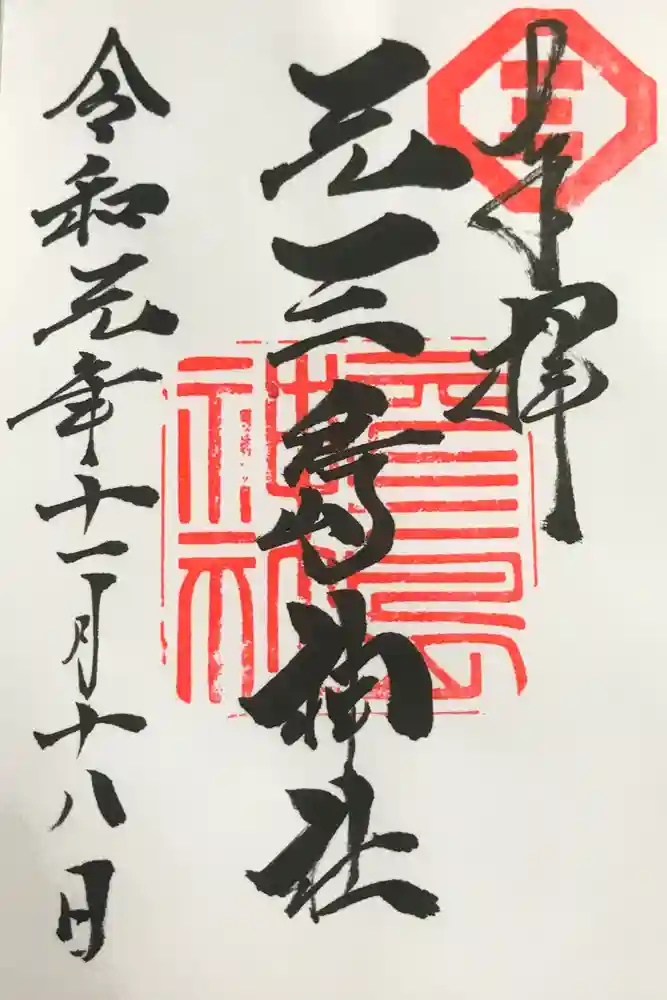 三
奉拝
元三島神社
令和元年十一月十八日